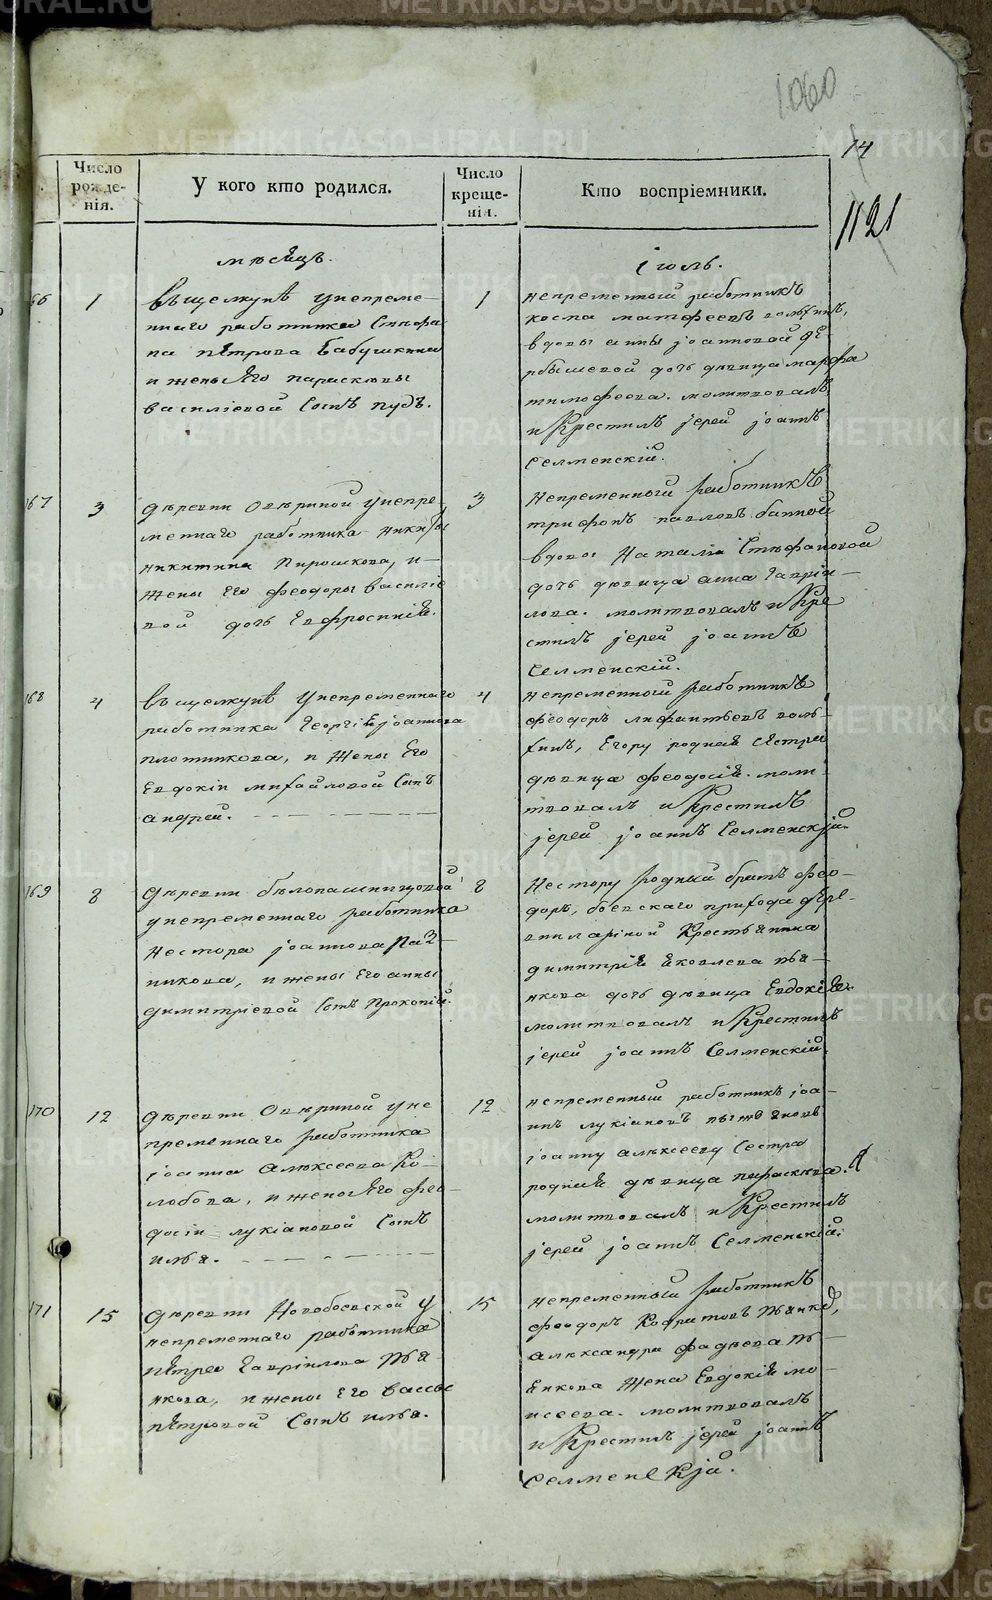 1060
74
1121
Число рожденія.
У кого кто родился.
Число крещенія.
Кто воспріемники.
мѣсяцъ.
іюль.
166
1
въ щелкунѣ у непреме-
ннаго работника Стефа
на петрова Бабушкина
и жены Его параскевы
василіевой Сынъ нудъ.
1
непременный работникъ
косма матфеевъ
вдовы анны іоанновой де
рбышевой дочь девица марфа
тимофеева. молитвовалъ
и Крестилъ іерей іоаннъ
Селменскій.
167
3
деревни Авериной у непре
меннаго работника никиты
никитина Пирошкова, и
жены Его феодоры василіе
вой дочь Евфросинія.
3
Непременный работникъ
трифонъ павловъ банной
вдовы Наталіи Стефановой
дочь девица анна гаврии-
лова. молитвовалъ и Кре
стилъ іерей іоаннъ
Селменскій.
168
4
въ щелкунѣ у непременнаго
работника Георгія іоаннова
плотникова, и жены Его
Евдокіи михайловой Сынъ
андрей.
4
непременный работникъ
феодоръ
Егору родная Сестра
девица феодосія. моли-
твовалъ и Крестилъ
іерей іоаннъ Селменскій.
169
8
деревни
у непременнаго работника
Нестора іоаннова Паз-
никова, и жены Его анны
димитріевой Сынъ Прокопій.
8
Нестору родный братъ фео-
доръ, боевскаго прихода дере
вни ларіной Крестьянина
димитрія яковлева пья-
нкова дочь девица Евдокія.
молитвовалъ и Крестилъ
іерей іоаннъ Селменскій.
170
12
деревни Аверіной у не
пременнаго работника
іоанна алексеева Ко-
лобова, и жены Его фео-
досіи лукіановой Сынъ
илья.
12
непременный работникъ іоа-
ннъ лукіановъ пыжьяновъ
іоанну алексееву Сестра
родная девица параскева.
молитвовалъ и Крестилъ
іерей іоаннъ Селменскій.
171
15
деревни Новобоевской у
непременнаго работника
петра гавріилова пья-
нкова, и жены Его вассы
петровой Сынъ илья.
15
непременный работникъ
феодоръ пьянкой,
александра фадеева пь-
янкова жена Евдокія мо-
исеева. молитвовалъ
и Крестилъ іерей іоаннъ
Селменскій.
METRIKI.GASO-URAL.RU